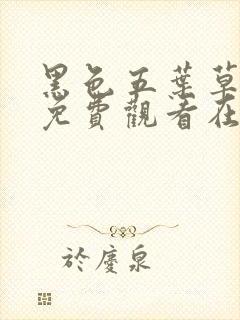 黑色五葉草
免費觀看在
於慶泉